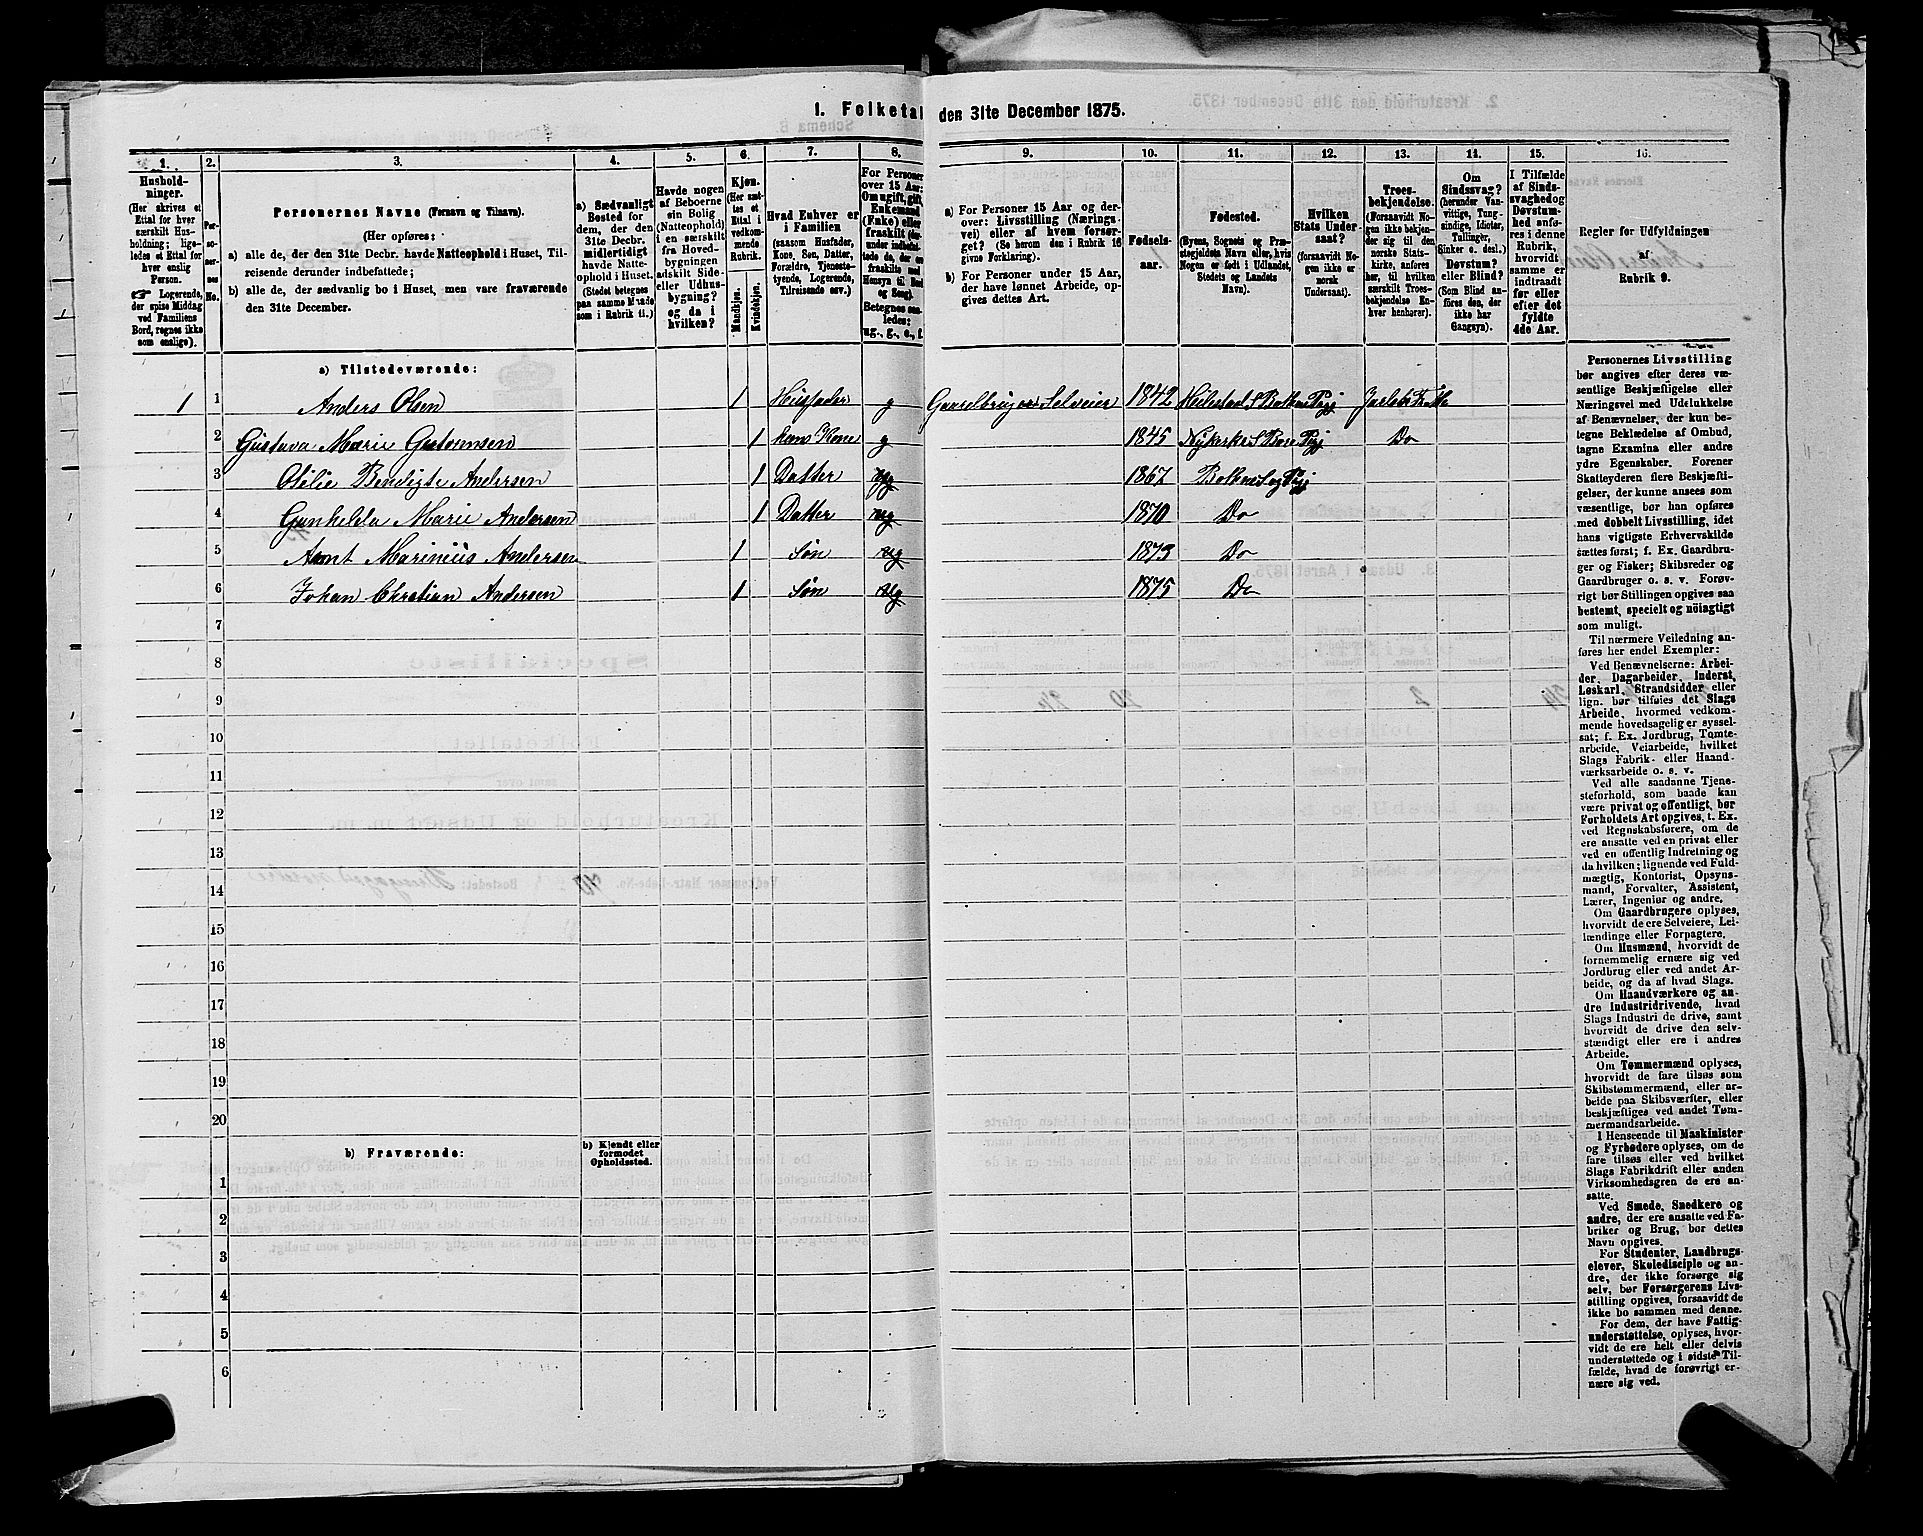 1. Folketal den 31te December 1875.
1. 2. 3. 4. 5. 6. 7. 8. 9. 10. 11. 12. 13. 14. 15. 16.
Husholdninger.
(Her skrives et
Ettal for hver
særskilt Husholdning; ligeledes
et Ettal for
hver enslig
Person.
☞ Logerende,
der spise Middag
ved Familiens
Bord, regnes ikke
som enslige).
Personernes No.
Personernes Navne (Fornavn og Tilnavn).
(Her opføres:
a) alle de, der den 31te Decbr. havde Natteophold i Huset, Tilreisende
derunder indbefattede;
b) alle de, der sædvanlig bo i Huset, men vare fraværende
den 31te December.
a) Sædvanligt
Bosted for
dem, der den
31te Decbr.
midlertidigt
havde Natteophold
i Huset.
(Stedet betegnes
paa samme Maade
som i Rubrik 11.)
Havde nogen
af Beboerne
sin Bolig
(Natteophold)
i en særskilt
fra Hovedbygningen
adskilt Side-
eller Udhusbygning?
og da i
hvilken?
Kjøn.
(Her sættes
et
Ettal i
vedkommende
Rubrik.
Mandkjøn.
Kvindekjøn.
Hvad Enhver er
i Familien
(saasom Husfader,
Kone, Søn, Datter,
Forældre, Tjenestetyende,
Logerende,
Tilreisende osv.)
For Personer
over 15 Aar:
Om ugift, gift,
Enkemand
(Enke) eller
fraskilt
Betegnes saaledes:
ug., g., e., f.
a) For Personer 15 Aar og derover:
Livsstilling (Næringsvei)
eller af hvem forsørget?
(Se herom den i Rubrik 16
givne Forklaring).
b) For Personer under 15 Aar,
der have lønnet Arbeide, opgives
dettes Art.
Fødselsaar.
Fødested.
(Byens, Sognets og Præstegjeldets
Navn eller, hvis
Nogen er født i Udlandet,
Stedets og Landets
Navn).
Hvilken
Stats Undersaat?
(forsaavidt Nogen
ikke er
norsk
Undersaat).
Troesbekjendelse.
(Forsaavidt Nogen
ikke bekjender
sig til den
norske Statskirke,
anføres
her, til hvilken
særskilt Troesbekjendelse
Enhver
henhører).
Om
Sindssvag?
(herunder Vanvittige,
Tungsindige,
Idioter,
Tullinger,
Sinker o. desl.).
Døvstum?
eller Blind?
(Som Blind anføres
den, der
ikke har
Gangsyn).
I Tilfælde
af Sindssvaghed
og
Døvstumhed
anføres
i denne
Rubrik,
hvorvidt
samme er
indtraadt
før eller
efter det
fyldte
4de Aar.
Regler for Udfyldningen
af
Rubrik 9.
a) Tilstedeværende:
1 1 Anders Olsen 1 Husfader g Gaardbruger Selveier 1842
2 Gustava Marie 1 hans Kone g 1845 Do
3 Bendigte Andersen 1 Datter ug 1867
4 Gunhilda Marie Andersen 1 Datter ug 1870 Do
5 Marinius Andersen 1 Søn ug 1873 Do
6 Johan Christian Andersen 1 Søn ug 1875 Do
7
8
9
10
11
12
13
14
15
16
17
18
19
20
b) Fraværende:
b) Kjendt eller
formodet
Opholdssted.
1
2
3
4
5
6
Personernes Livsstilling
bør angives efter deres væsentlige
Beskjæftigelse eller
Næringsvei med Udelukkelse
af Benævnelser, der kun betegne
Beklædelse af Ombud,
tagne Examina eller andre
ydre Egenskaber. Forener
Skatteyderen flere Beskjæftigelser,
der kunne ansees som
væsentlige, bør han opføres
med dobbelt Livsstilling, idet
hans vigtigste Erhvervskilde
sættes først; f. Ex. Gaardbruger
og Fisker; Skibsreder og
Gaardbruger o. s. v. Forøvrigt
bør Stillingen opgives saa
bestemt, specielt og nöiagtigt
som muligt.
Til nærmere Veiledning anføres
her endel Exempler:
Ved Benævnelserne: Arbeider,
Dagarbeider, Inderst,
Løskarl, Strandsidder eller
lign. bør tilføies det Slags
Arbeide, hvormed vedkommende
hovedsagelig er sysselsat;
f. Ex. Jordbrug, Tomtearbeide,
Veiarbeide, hvilket
Slags Fabrik- eller Haandværksarbeide
o. s. v.
Ved alle saadanne Tjenesteforhold,
som baade kan
være privat og offentligt, bør
Forholdets Art opgives, t. Ex.
ved Regnskabsførere, om de
ere ansatte ved en privat eller
ved en offentlig Indretning og
da hvilken; lignende ved Fuldmægtig,
Kontorist, Opsynsmand,
Forvalter, Assistent,
Lærer, Ingeniør og andre.
Om Gaardbrugere oplyses,
hvorvidt de ere Selveiere, Leilændinge
eller Forpagtere.
Om Husmænd, hvorvidt de
fornemmelig ernære sig ved
Jordbrug eller ved andet Arbeide,
og da af hvad Slags.
Om Haandværkere og andre
Industridrivende, hvad
Slags Industri de drive, samt
hvorvidt de drive den selvstændigt
eller ere i andres
Arbeide.
Om Tømmermænd oplyses,
hvorvidt de fare tilsøs som
Skibstømmermænd, eller arbeide
paa Skibsværfter, eller
beskjæftiges ved andet Tømmermandsarbeide.
I Henseende til Maskinister
og Fyrbødere oplyses, om de
fare tilsøs eller ved hvilket
Slags Fabrikdrift eller anden
Virksomhedsgren de ere ansatte.
Ved Smede, Snedkere og
andre, der ere ansatte ved Fabriker
og Brug, bør dettes
Navn opgives.
For Studenter, Landbrugselever,
Skoledisciple og andre,
der ikke forsørge sig
selv, bør Forsørgerens Livsstilling
opgives, forsaavidt de
ikke bo sammen med denne.
For dem, der have Fattigunderstøttelse,
oplyses, hvorvidt
de ere helt eller delvis
understøttede og i sidste Tilfælde,
hvad de forøvrigt ernære
sig ved.